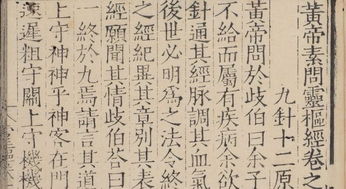 黃帝素問靈樞經卷之
九針十二原
黃帝問於歧伯曰余子
不給而屬有疾病余欲
針通其經脉調其血氣
後世必明爲之法令終
之經紀異其章別其表
經願聞其情歧伯荅曰
一終於九焉請言其道
上守神神乎神客在門
遲粗守關上守機機